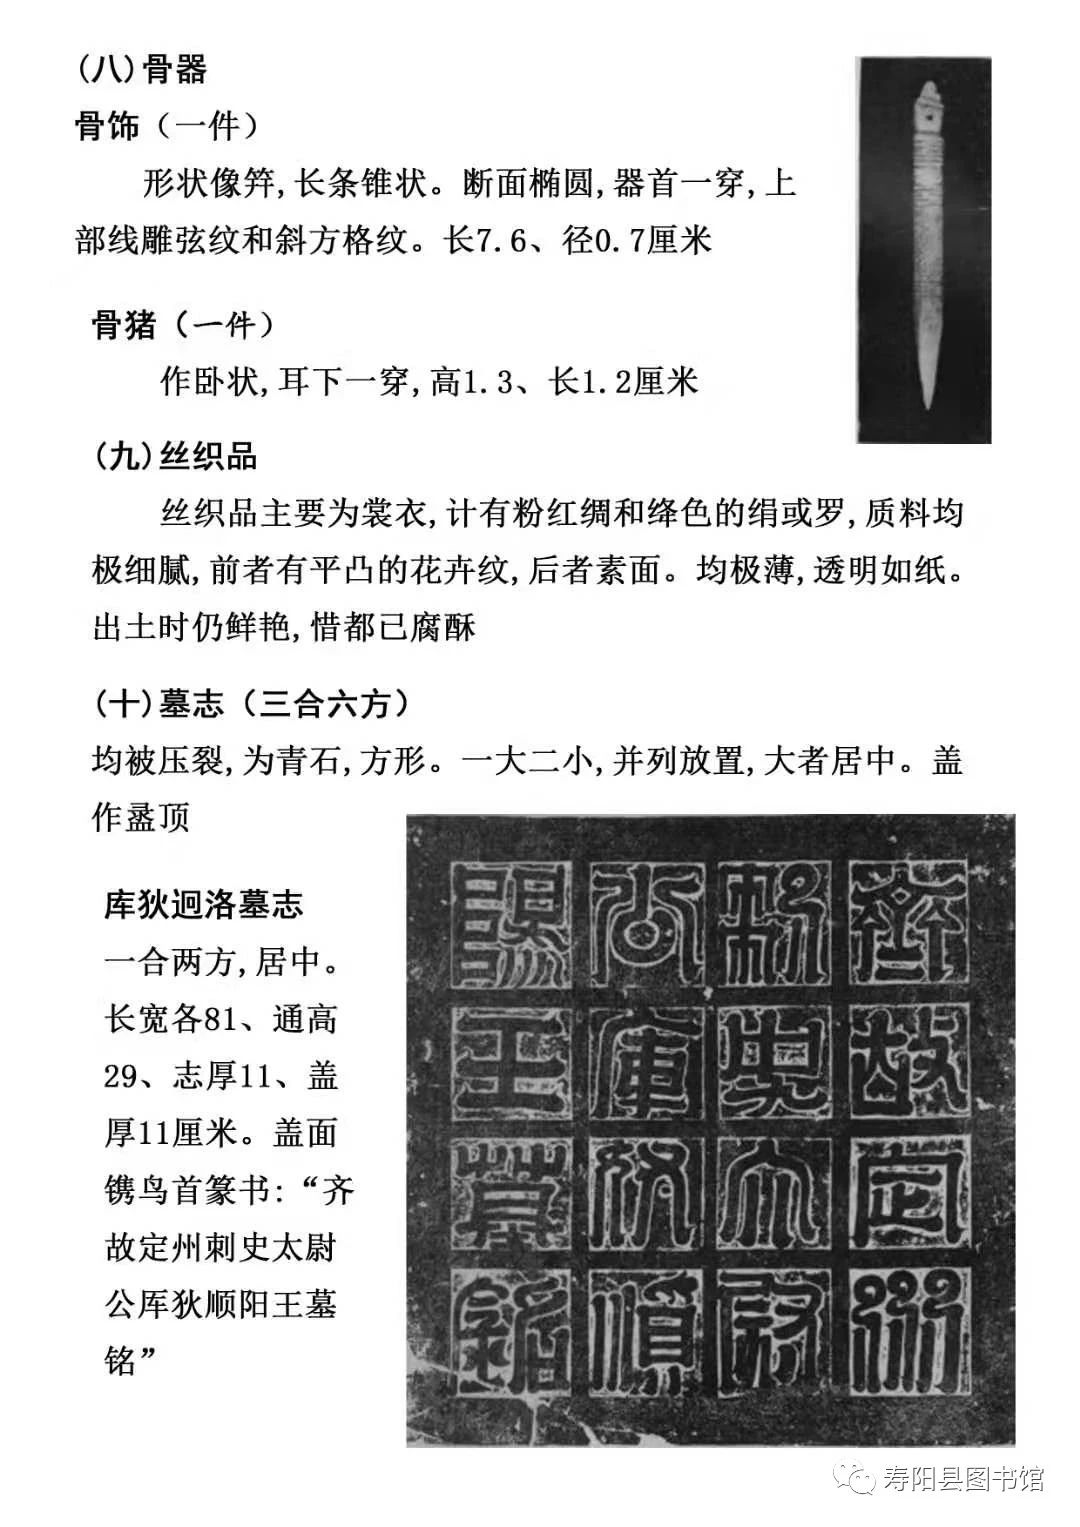 (八)骨器
骨饰(一件)
形状像笄,长条锥状。断面椭圆,器首一穿,上
部线雕弦纹和斜方格纹。长7.6、径0.7厘米
骨猪(一件)
作卧状,耳下一穿,高1.3、长1.2厘米
(九)丝织品
丝织品主要为裳衣,计有粉红绸和绛色的绢或罗,质料均
极细腻,前者有平凸的花卉纹,后者素面。均极薄,透明如纸。
出土时仍鲜艳,惜都已腐酥
(十)墓志(三合六方)
均被压裂,为青石,方形。一大二小,并列放置,大者居中。盖
作盝顶
库狄迥洛墓志
一合两方,居中。
长宽各81、通高
29、志厚11、盖
厚11厘米。盖面
镌鸟首篆书:“齐
故定州刺史太尉
公厍狄顺阳王墓
铭”
齊故定州
刺史太尉
公庫狄順
陽王墓銘
寿阳县图书馆